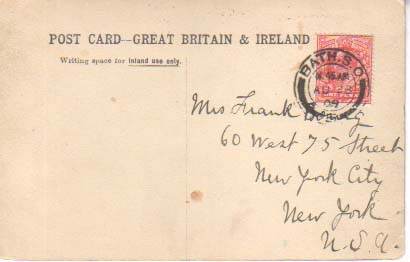 POST CARD—GREAT BRITAIN & IRELAND
Writing space for inland use only.
BATH.S.O.
09
Mrs Frank
60 West 75 Street
New York City
New York
U.S.A.